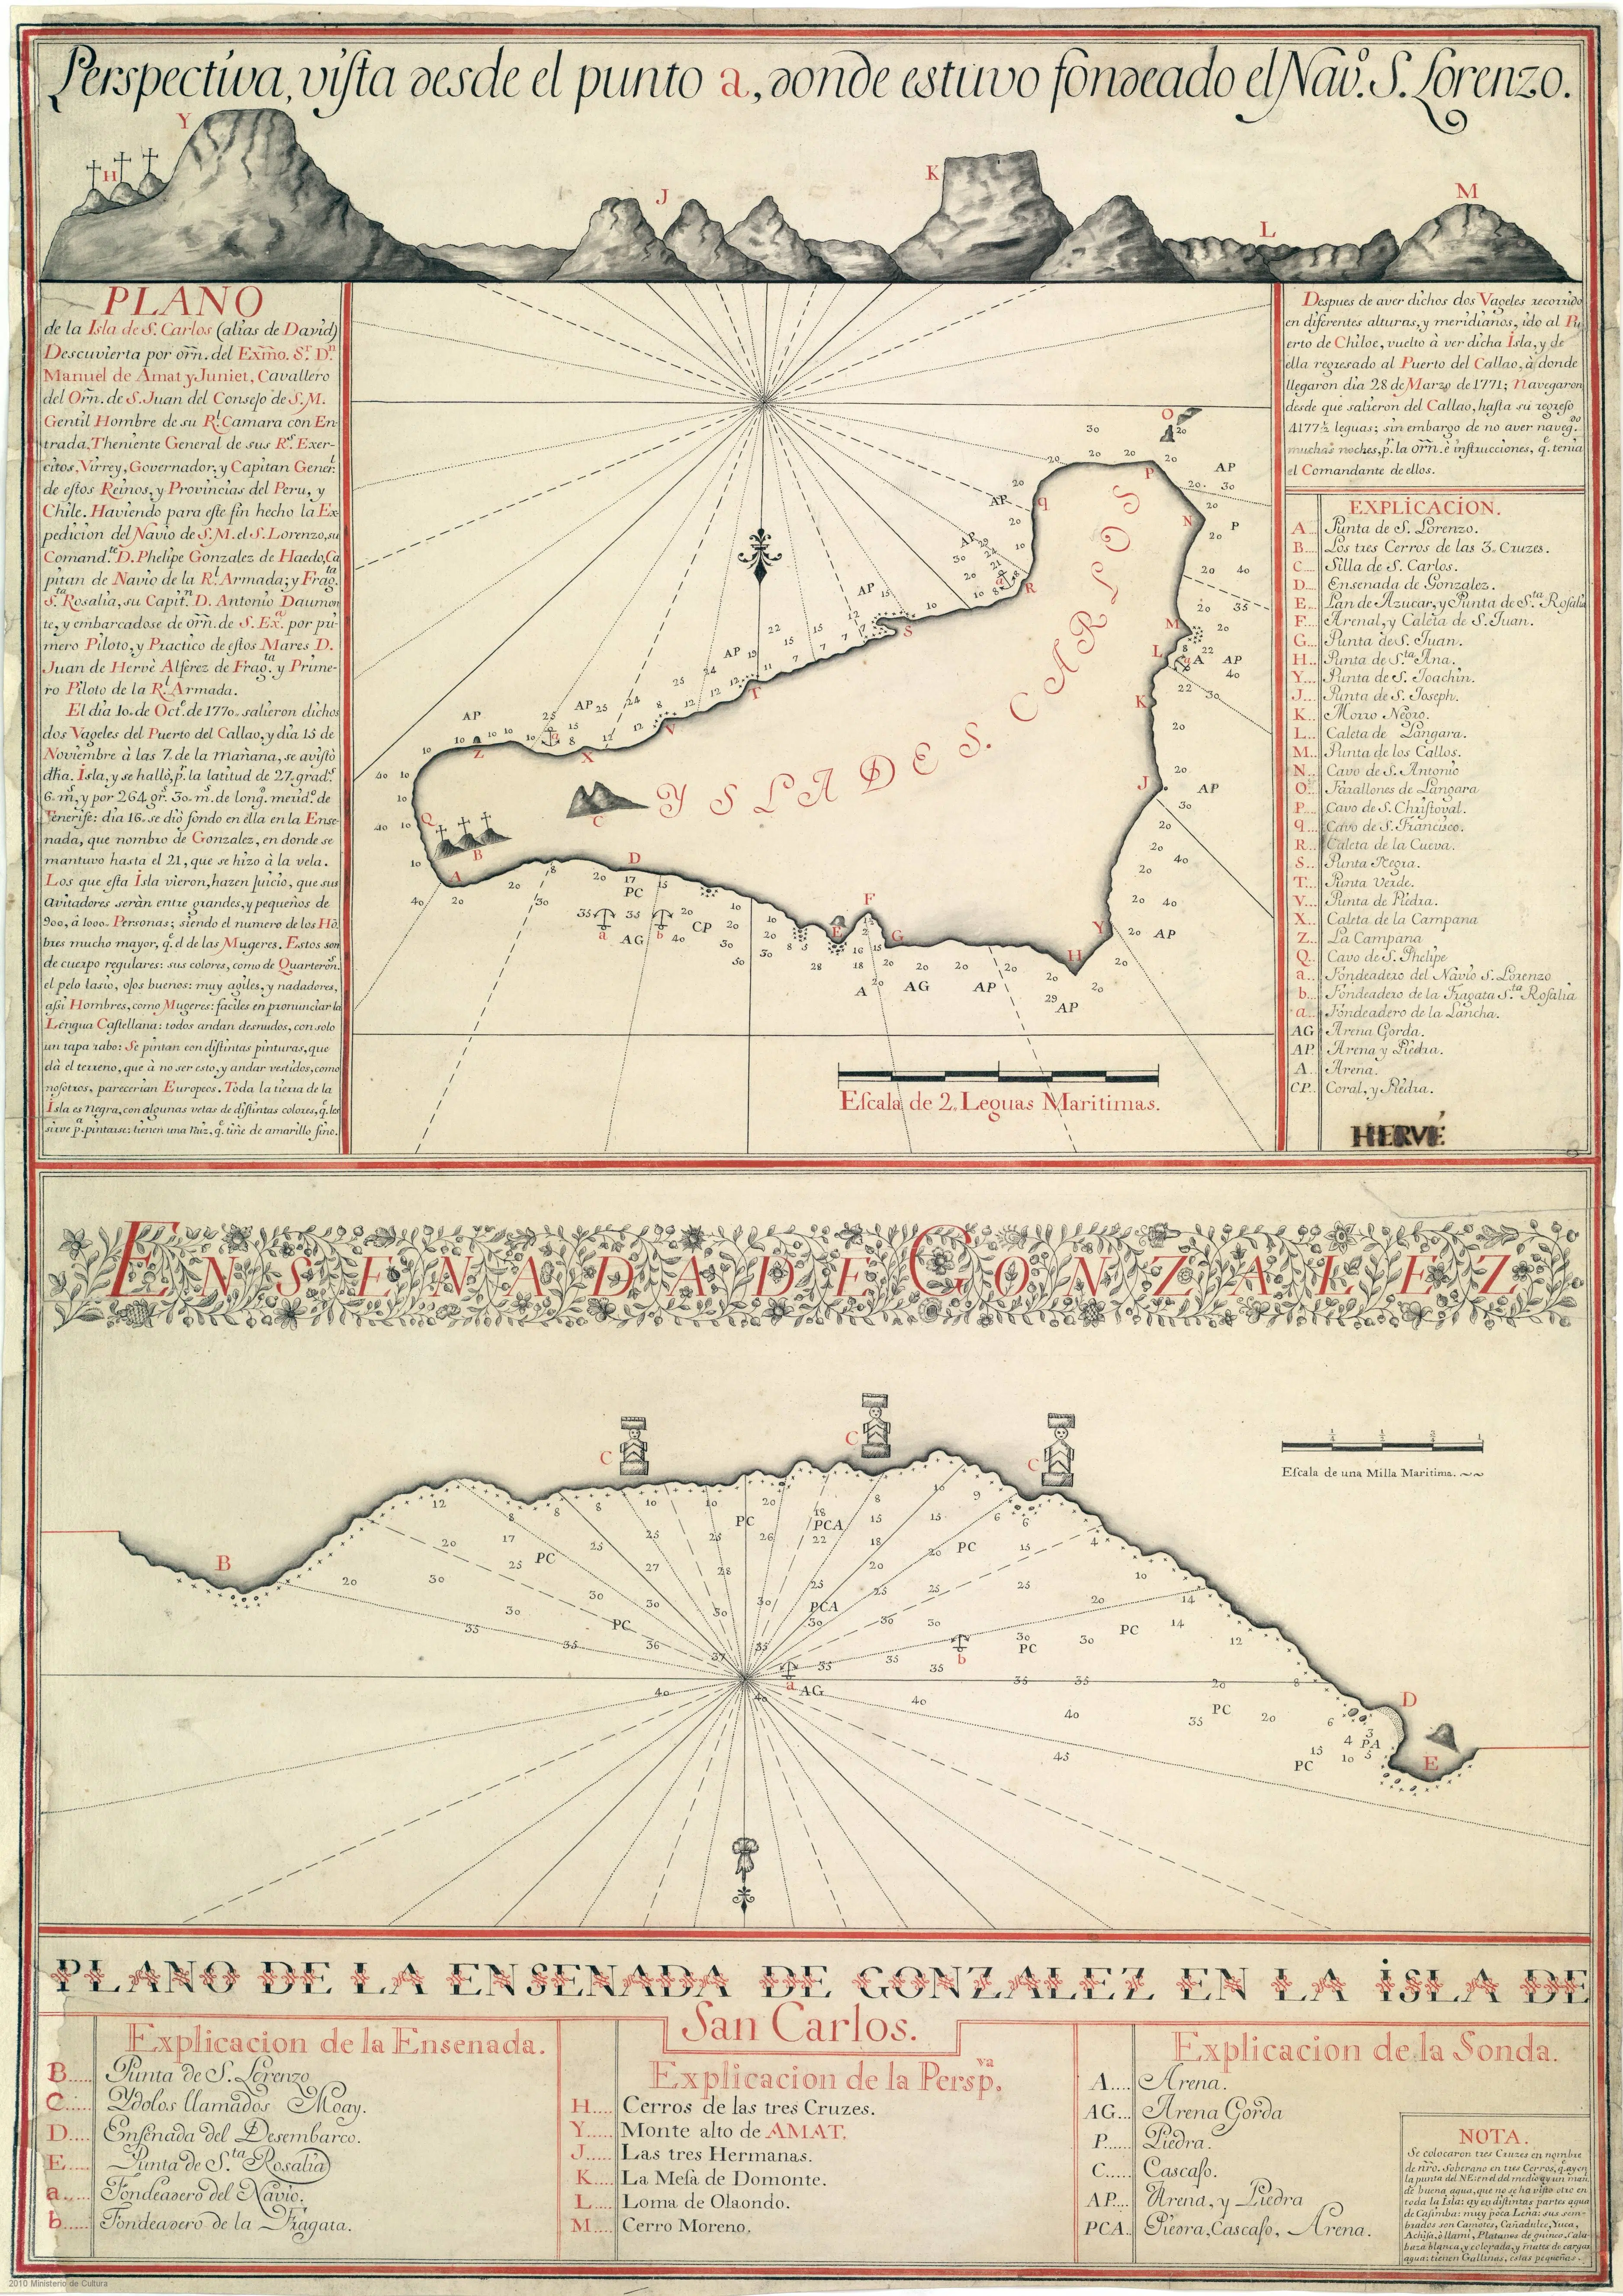 Perspectiva, vista desde el punto a, donde estuvo fondeado el Navo. S. Lorenzo.
Y
H
J
K
L
M
PLANO
de la Isla de S. Carlos (alias de David)
Descuvierta por orñ. del Exmo. Sr. Dn.
Manuel de Amat y Juniet, Cavallero
del Orñ. de S. Juan del Consejo de S.M.
Gentil Hombre de su Rl. Camara con En-
trada, Theniente General de sus Rs. Exer-
citos, Virrey, Governador, y Capitan Generl.
de estos Reinos, y Provincias del Peru, y
Chile. Haviendo para este fin hecho la Ex-
pedicion del Navio de S.M. el S. Lorenzo, su
Comandte. D. Phelipe Gonzalez de Haedo, Ca
pitan de Navio de la Rl. Armada; y Fragta.
Sta. Rosalia, su Capitn. D. Antonio Daumon
te, y embarcadose de orñ. de S. Exa. por pri
mero Piloto, y Practico de estos Mares D.
Juan de Hervè Alferez de Fragta. y Prime-
ro Piloto de la Rl. Armada.
El dia 10. de Octe. de 1770. salieron dichos
dos Vageles del Puerto del Callao, y dia 15 de
Noviembre à las 7. de la Mañana, se avistò
dha. Isla, y se hallò, pr. la latitud de 27. grads.
6. ms. y por 264. gs. 30. m. de longd. merid. de
Tenerife: dia 16. se diò fondo en élla en la Ense-
nada, que nombro de Gonzalez, en donde se
mantuvo hasta el 21, que se hizo à la vela.
Los que esta Isla vieron, hazen Juicio, que sus
avitadores seràn entre grandes, y pequeños de
900, à 1000. Personas; siendo el numero de los Hõ
bres mucho mayor, qe. el de las Mugeres. Estos son
de cuerpo regulares: sus colores, como de Quarterons.
el pelo lasio, ojos buenos: muy agiles, y nadadores,
asi Hombres, como Mugeres: faciles en pronunciar la
Lengua Castellana: todos andan desnudos, con solo
un tapa rabo: Se pintan con distintas pinturas, que
dà el terreno, que à no ser esto, y andar vestidos, como
nosotros, parecerian Europeos. Toda la tierra de la
Isla es Negra, con algunas vetas de distintas colores, qe. les
sirve pa. pintarse: tienen una Raiz, qe. tiñe de amarillo fino.
YSLA DE S. CARLOS
Escala de 2. Leguas Maritimas.
Despues de aver dichos dos Vageles recorrido
en diferentes alturas, y meridianos, ido al Pu
erto de Chiloe, vuelto à ver dicha Isla, y de
ella regresado al Puerto del Callao, à donde
llegaron dia 28 de Marzo de 1771; Navegaron
desde que salieron del Callao, hasta su regreso
4177½ leguas; sin embargo de no aver navegdo.
muchas noches, pr. la orñ. è instrucciones, qe. tenia
el Comandante de ellos.
EXPLICACION.
A... Punta de S. Lorenzo.
B... Los tres Cerros de las 3. Cruzes.
C... Silla de S. Carlos.
D... Ensenada de Gonzalez.
E... Pan de Azucar, y Punta de Sta. Rosalia
F... Arenal, y Caleta de S. Juan.
G... Punta de S. Juan.
H... Punta de Sta. Ana.
Y... Punta de S. Joachin.
J... Punta de S. Joseph.
K... Morro Negro.
L... Caleta de Langara.
M... Punta de los Callos.
N... Cavo de S. Antonio
O... Farallones de Langara
P... Cavo de S. Christoval.
q... Cavo de S. Francisco.
R... Caleta de la Cueva.
S... Punta Negra.
T... Punta Verde.
V... Punta de Piedra.
X... Caleta de la Campana
Z... La Campana
Q... Cavo de S. Phelipe
a... Fondeadero del Navio S. Lorenzo
b... Fondeadero de la Fragata Sta. Rosalia
a... Fondeadero de la Lancha.
AG Arena Gorda.
AP. Arena y Piedra.
A... Arena.
CP. Coral, y Piedra.
HERVÉ
ENSENADA DE GONZALEZ
C
C
C
Escala de una Milla Maritima.
B
D
E
a
b
PLANO DE LA ENSENADA DE GONZALEZ EN LA ISLA DE
San Carlos.
Explicacion de la Ensenada.
B..... Punta de S. Lorenzo
C..... Ydolos llamados Moay.
D.... Ensenada del Desembarco.
E.... Punta de Sta. Rosalia
a..... Fondeadero del Navio.
b..... Fondeadero de la Fragata.
Explicacion de la Perspva.
H.... Cerros de las tres Cruzes.
Y..... Monte alto de AMAT.
J..... Las tres Hermanas.
K.... La Mesa de Domonte.
L.... Loma de Olaondo.
M.... Cerro Moreno.
Explicacion de la Sonda.
A.... Arena.
AG... Arena Gorda
P...... Piedra.
C..... Cascajo.
AP.... Arena, y Piedra
PCA. Piedra, Cascajo, Arena.
NOTA.
Se colocaron tres Cruzes en nombre
de nro. Soberano en tres Cerros, qe. ay en
la punta del NE: en el del medio ay un man.
de buena agua, que no se ha visto otro en
toda la Isla: ay en distintas partes agua
de Casimba: muy poca Leña: sus sem-
brados son Camotes, Cañadulce, Yuca,
Platanos de guineo, Cala-
baza blanca, y colorada, y mates de cargar
agua: tienen Gallinas, estas pequeñas.
2010 Ministerio de Cultura